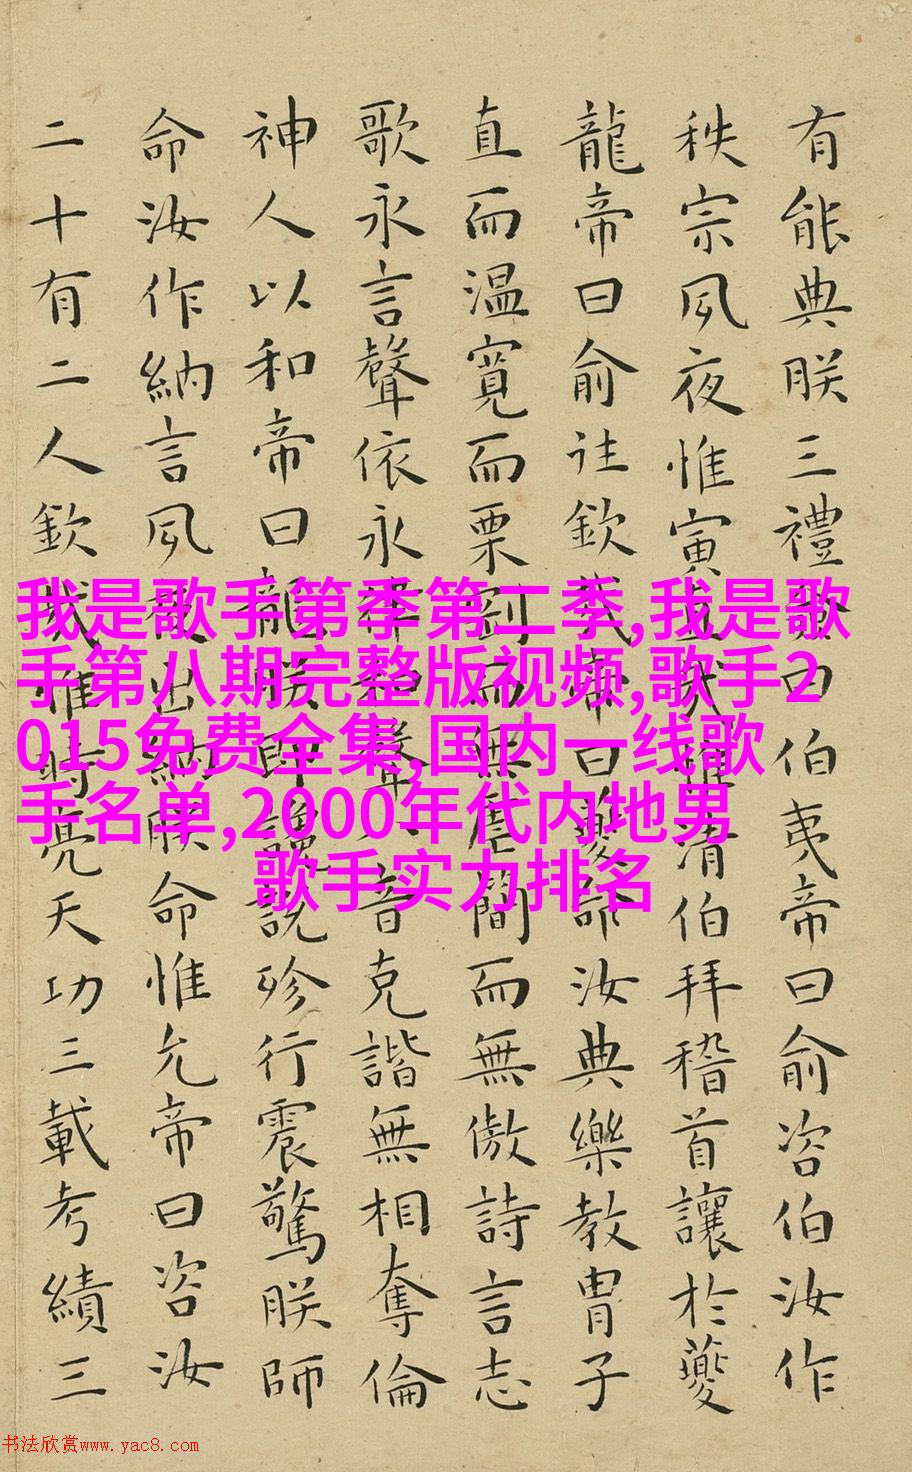 有能典朕三禮僉曰伯夷帝曰俞咨伯汝作
秩宗夙夜惟寅直哉惟清伯拜稽首讓於夔
龍帝曰俞往欽哉帝曰夔命汝典樂教冑子
直而温寬而栗剛而無虐簡而無傲詩言志
歌永言聲依永律和聲八音克諧無相奪倫
神人以和帝曰龍朕堲讒說殄行震驚朕師
命汝作納言夙夜出納朕命惟允帝曰咨汝
二十有二人欽哉惟時亮天功三載考績三
我是歌手第季第二季,我是歌
手第八期完整版视频,歌手2
015免费全集,国内一线歌
手名单,2000年代内地男
歌手实力排名
书法欣赏www.yac8.com